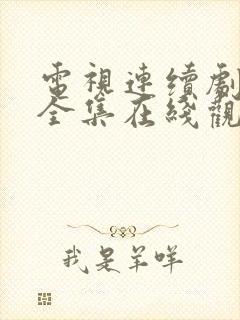 電視連續劇
全集在綫觀
我是羊咩